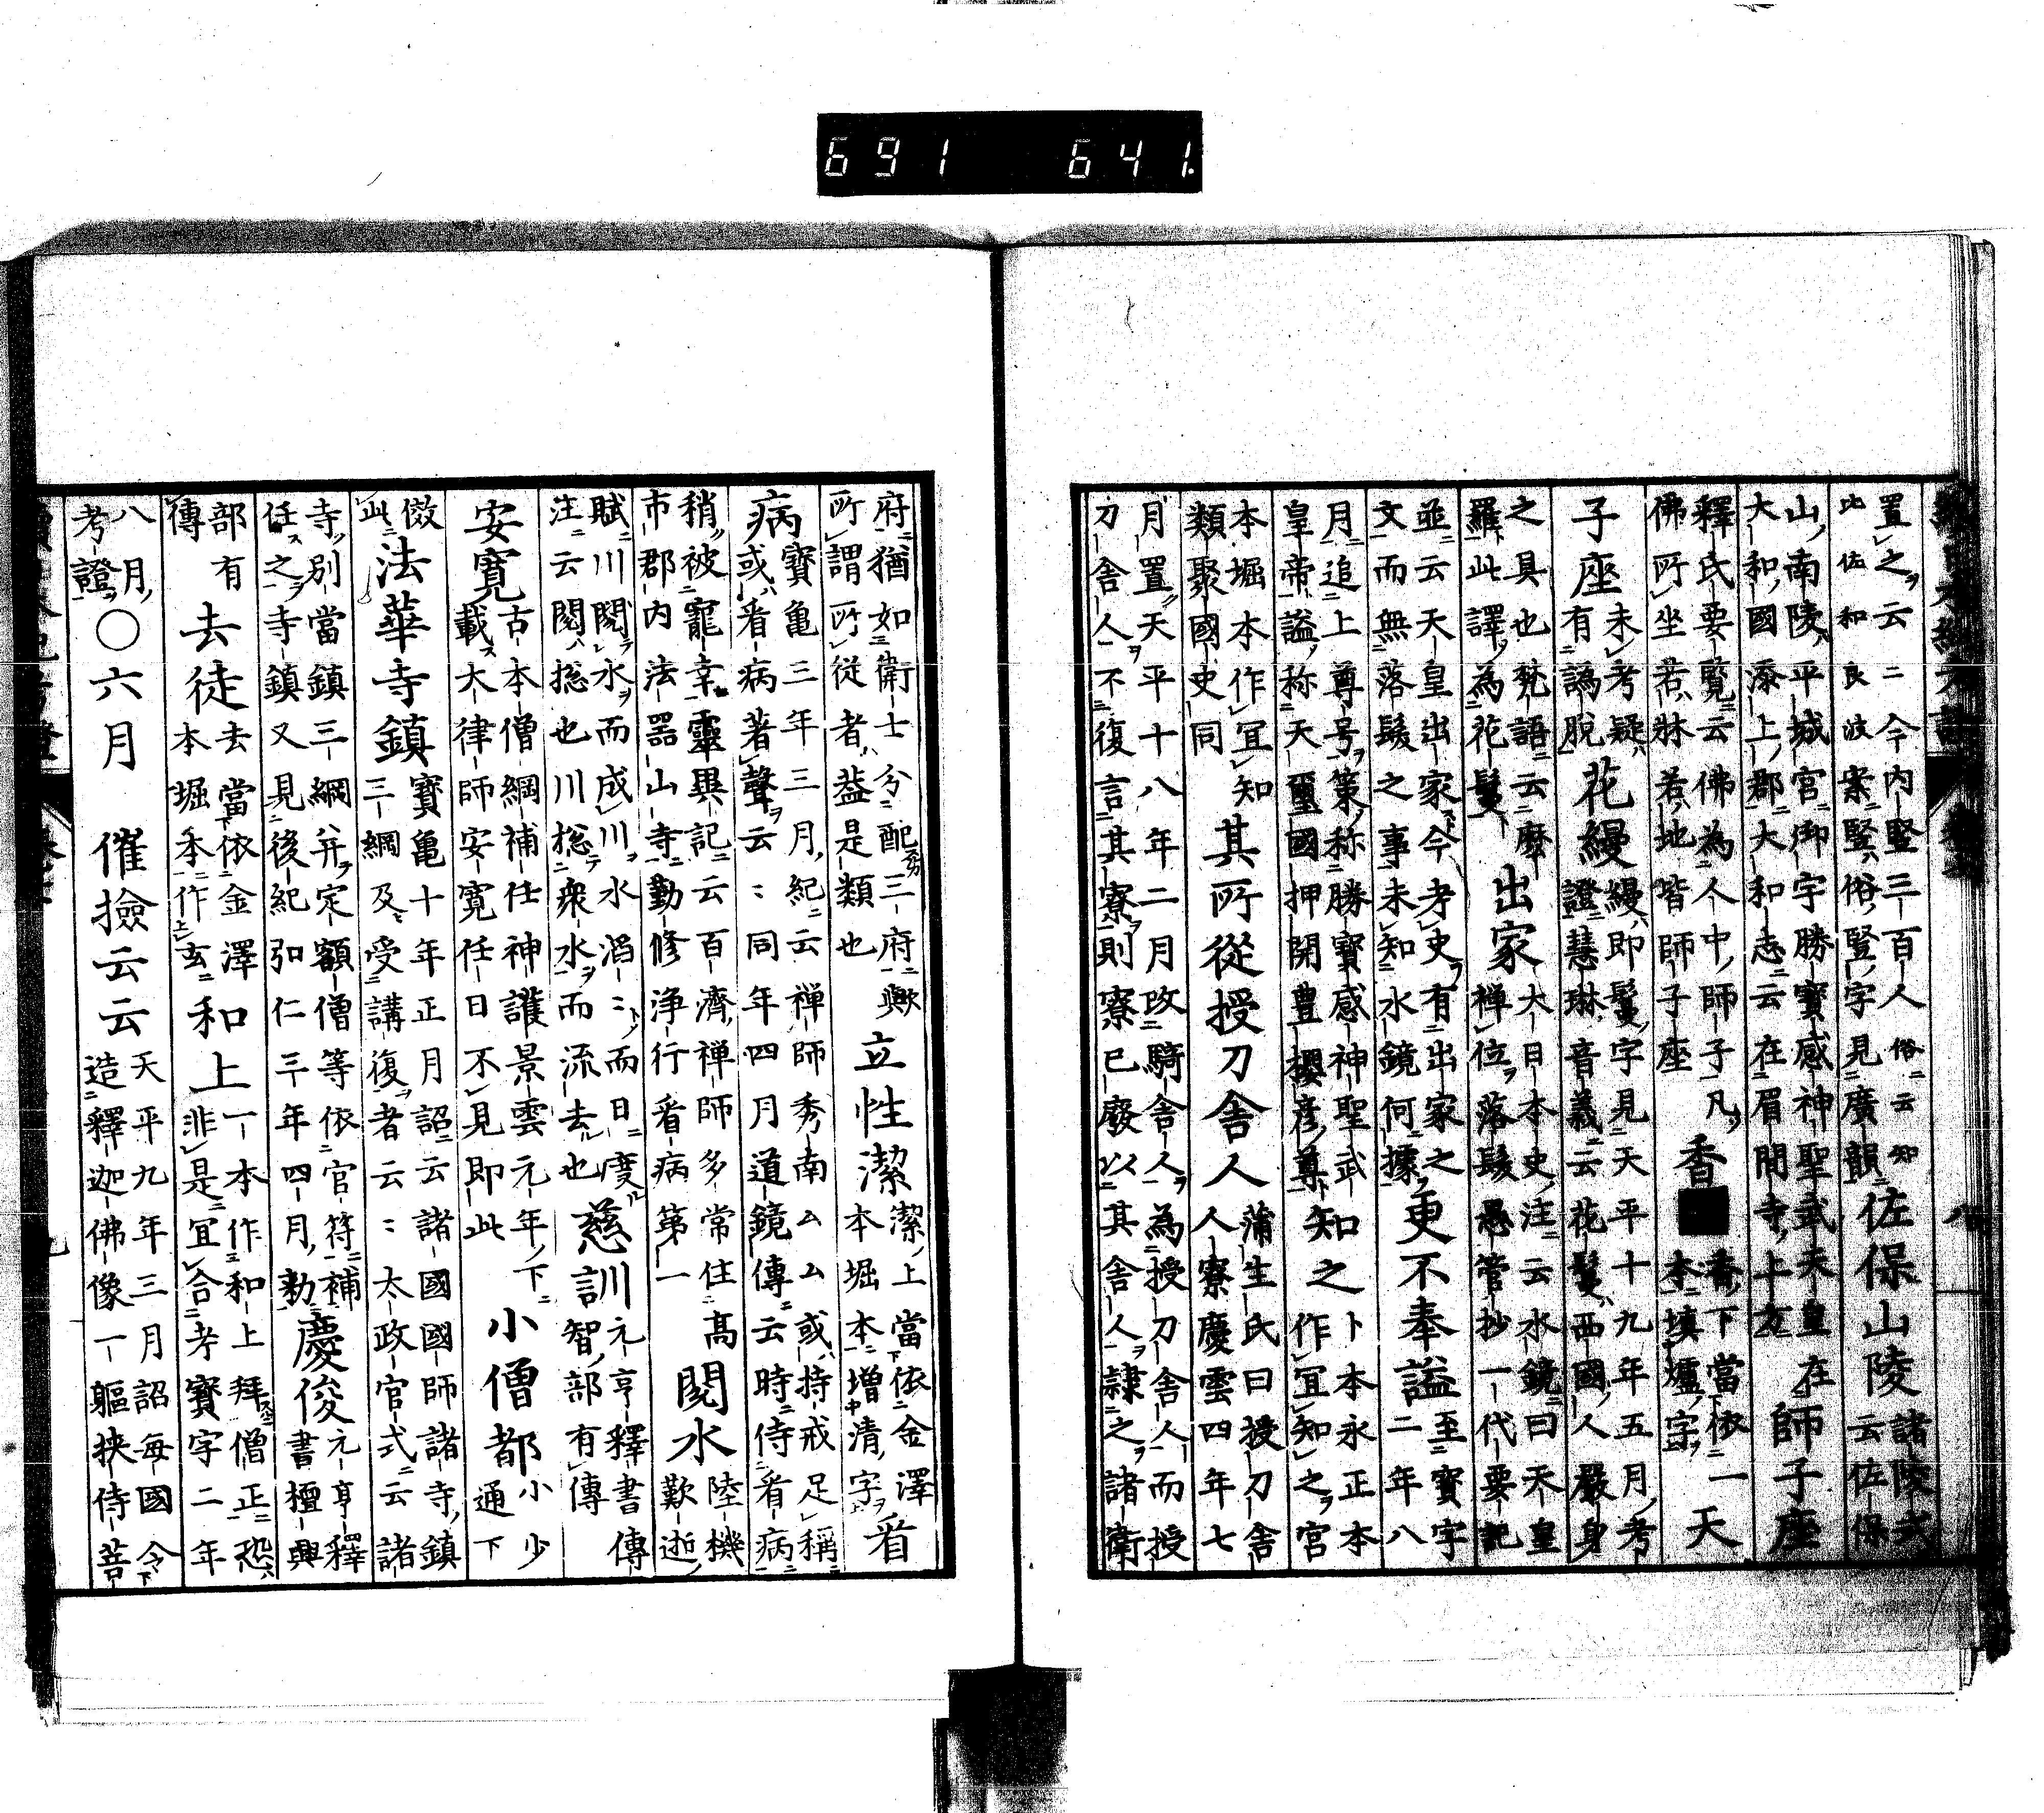 置之云二今内竪三百人俗云知
比佐和良波案竪俗豎字見廣韻
佐保山陵
諸陵式
云佐保
山南陵平城宮御宇勝寶感神聖武天皇在
大和國添上郡大和志云在眉間寺上方
師子座
釋氏要覽云佛為人中師子凡
佛所坐若牀若地皆師子座
香■
香下當依一
本填爐字
天
子座
未考疑
有譌脫
花縵
縵即鬘字見天平十九年五月考
證慧琳音義云花鬘西國人嚴身
之具也梵語云麼
羅此譯為花鬘
出家
大日本史注云水鏡曰天皇
禅位落髮愚管抄一代要記
並云天皇出家今考史有出家之
文而無落髮之事未知水鏡何據
更不奉謚
至寶字
二年八
月追上尊号策称勝寶感神聖武
皇帝謚称天璽國押開豊櫻彦尊
知之
卜本永正本
作宜知之宮
本堀本作宜知
類聚國史同
其所從授刀舍人
蒲生氏曰授刀舍
人寮慶雲四年七
月置天平十八年二月改騎舍人為授刀舍人而授
刀舍人不復言其寮則寮已廢以其舍人隷之諸衛
府猶如衛士分配三府歟
所謂所従者益是類也
立性潔
潔上當依金澤
本堀本增清字
看
病
寶亀三年三月紀云禅師秀南ムム或持戒足稱
或看病著聲云〻同年四月道鏡傳云時侍看病
稍被寵幸靈異記云百濟禅師多常住高
市郡内法器山寺勤修浄行看病第一
閱水
陸機
歎逝
賦川閱水而成川水滔〻而日度
注云閱揔也川揔衆水而流去也
慈訓
元亨釋書傳
智部有傳
安寛
古本僧綱補任神護景雲元年下
載大律師安寛任日不見即此
小僧都
小少
通下
倣
此
法華寺鎮
寶亀十年正月詔云諸國國師諸寺鎮
三綱及受講復者云〻太政官式云諸
寺別當鎮三綱并定額僧等依官符補
任之寺鎮又見後紀弘仁三年四月勅
慶俊
元亨釋
書檀興
部有
傳
去徒
去當依金澤
本堀本作玄
和上
一本作和上拜僧正恐
非是宜合考寶字二年
八月
考證
〇六月 催撿云云
天平九年三月詔毎國令
造釋迦佛像一軀挟侍菩
691 641.